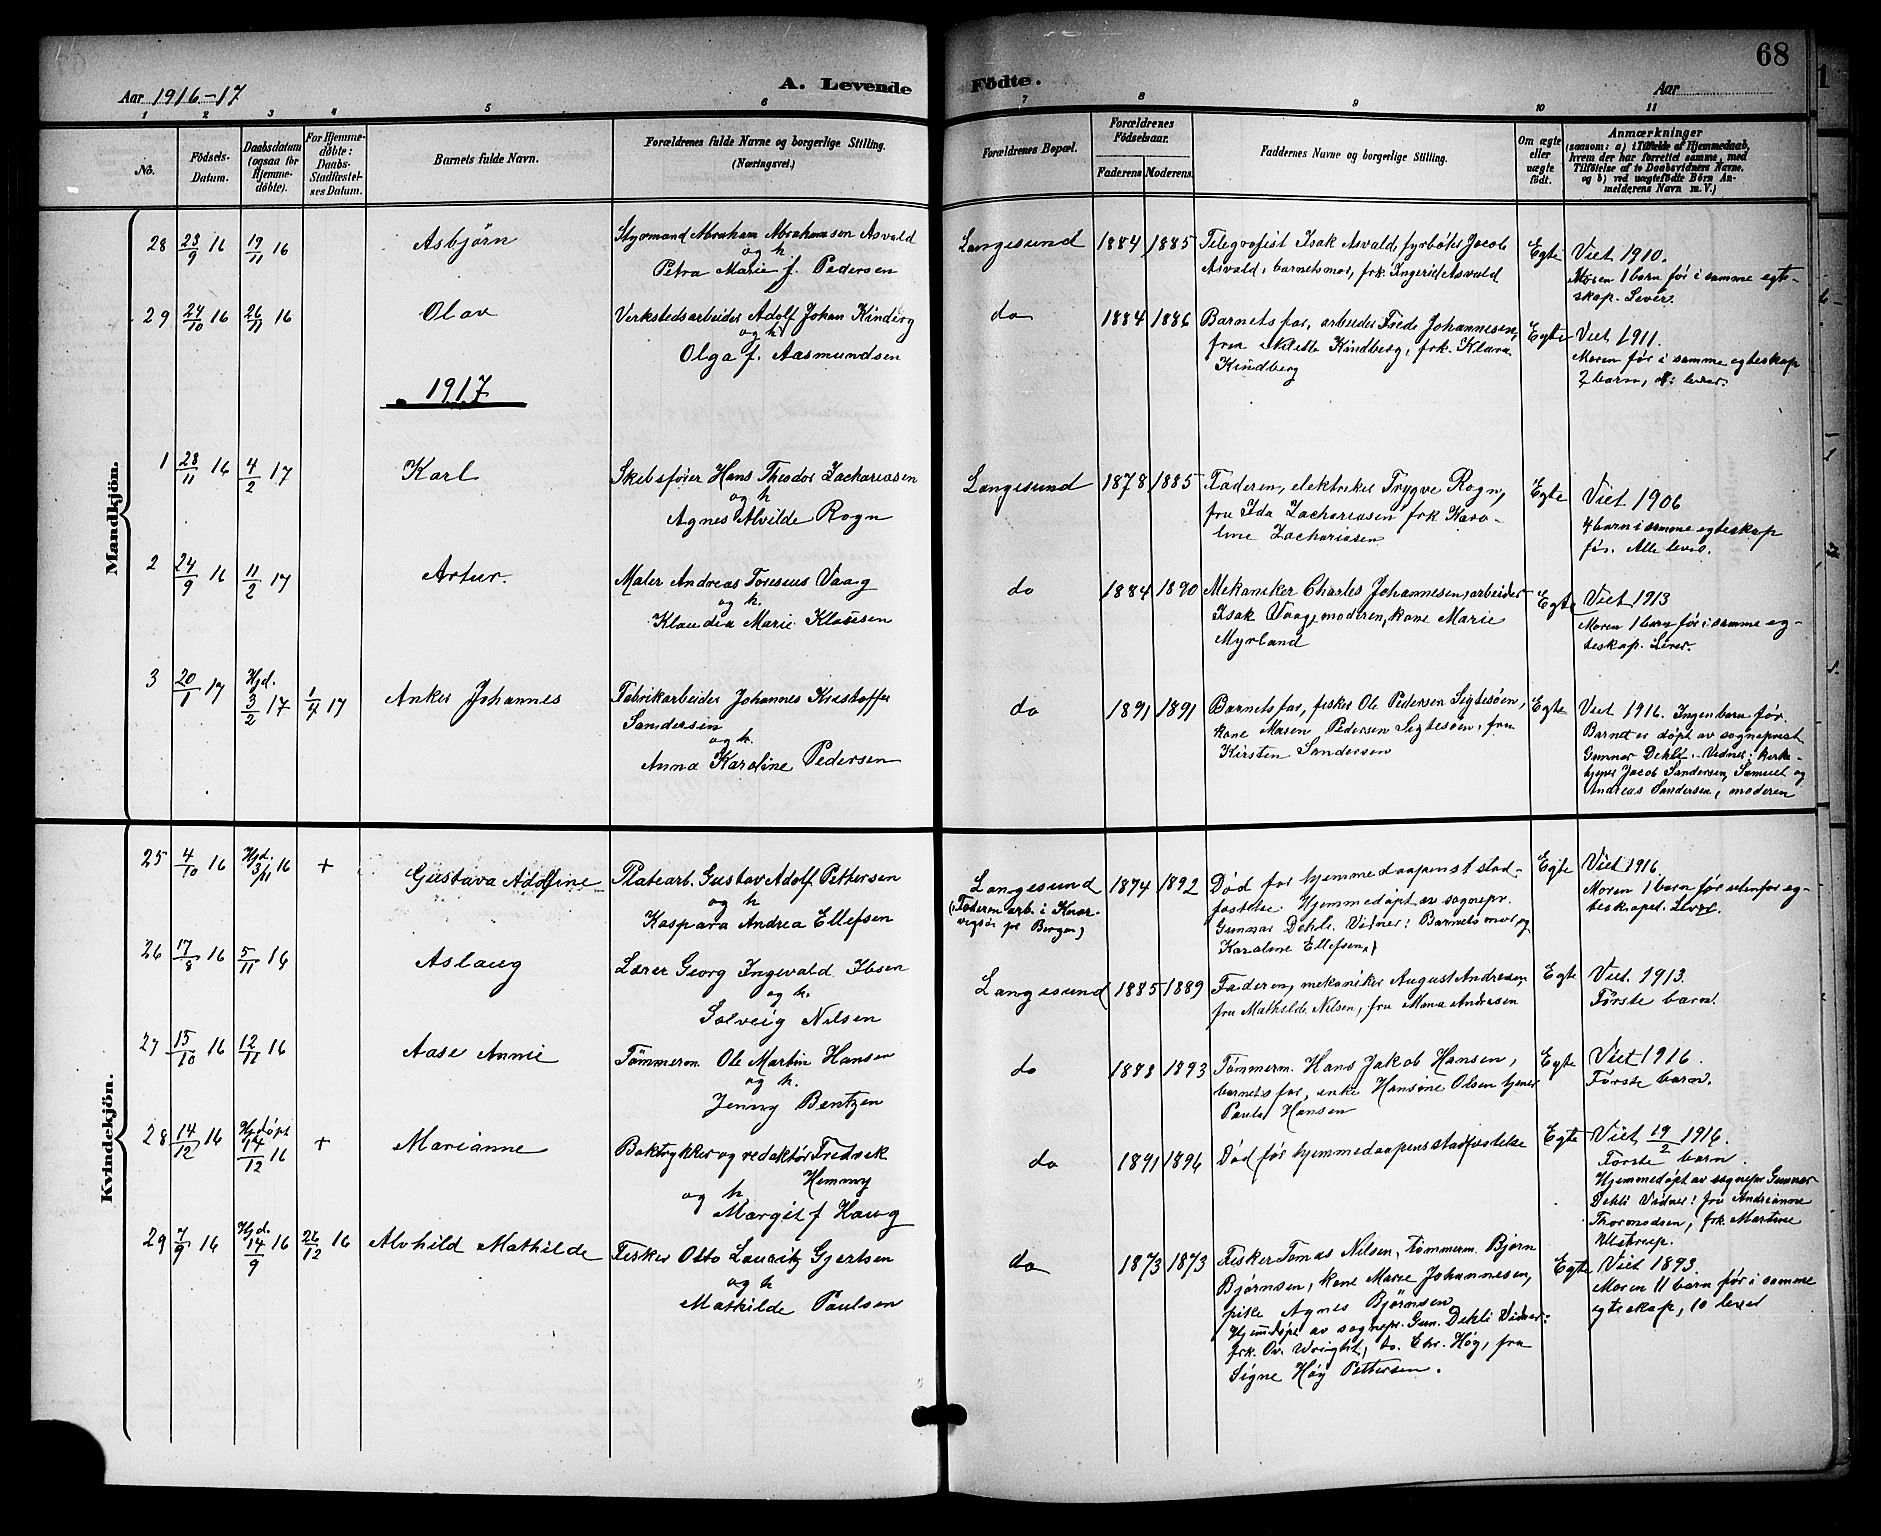 68
Aar 1916-17
A. Levende Födte.
Aar
1 2 3 4 5 6 7 8 9 10 11
No.
Födsels-Datum.
Daabsdatum (ogsaa for Hjemme-döbte).
For Hjemme-döbte: Daabs-Stadfæstel-ses Datum.
Barnets fulde Navn.
Forældrenes fulde Navne og borgerlige Stilling. (Næringsvei.)
Forældrenes Bopæl.
Forældrenes Födselsaar.
Faderens. Moderens.
Faddernes Navne og borgerlige Stilling.
Om ægte eller uægte født.
Anmærkninger
(saasom: a) i Tilfælde af Hjemmedaab, hvem der har forrettet samme, med Tilföielse af to Daabsvidners Navne, og b) ved uægtefödte Börn An-melderens Navn m. V.)
Mandkjön.
28 23/9 16 19/11 16 Asbjörn
Styrmand Abraham Abrahamsen Asvald
og h
Petra Marie f. Pedersen
Langesund 1884 1885
Telegrafist Isak Asvald, fyrbøter Jacob
Asvald, barnets mor, frk. Ingerid Asvald
Egte
Viet 1910.
Moren 1 barn før i samme egte-
skap. Lever.
29 24/10 16 26/11 16 Olav
Verkstedsarbeider Adolf Johan Kindberg
og h
Olga f. Aasmundsen
do 1884 1886
Barnets far, arbeider Frede Johannesen,
frue Kindberg, frk. Klara
Kindberg
Egte
Viet 1911.
Moren før i samme egteskap
2 barn, lever.
1917
1 28/11 16 4/2 17 Karl
Skibsfører Hans Theodor Zachariasen
og h
Agnes Alvilde Rogn
Langesund 1878 1885
Faderen, elektriker Trygve Rogn,
fru Ida Zachariasen frk Karo-
line Zachariasen
Egte
Viet 1906
4 barn i samme egteskap
før. Alle lever.
2 24/9 16 11/2 17 Artur.
Maler Andreas Toresius Vaag
og h.
Klaudia Marie Klausen
do 1884 1890
Mekaniker Charles Johannesen, arbeider
Isak Vaag, moderen, kone Marie
Myrland
Egte
Viet 1913
Moren 1 barn før i samme eg-
teskap. Lever.
3 20/1 17 Hjd. 3/2 17 1/4 17 Anker Johannes
Fabrikarbeider Johannes Kristoffer
Sandersen
og h.
Anna Karoline Pedersen
do 1891 1891
Barnets far, fisker Ole Pedersen Sigtesøen,
kone Maren Pedersen Sigtesøen, fru
Kirsten Sandersen
Egte
Viet 1916. Ingen barn før.
Barnet er døpt av sogneprest
Gunnar Dehli. Vidner: kirke-
tjener Jacob Sandersen, Samuel og
Andreas Sandersen, moderen
Kvindekjön.
25 4/10 16 Hjd. 3/11 16 + Gustava Adolfine
Platearb. Gustav Adolf Pettersen
og h
Kaspara Andrea Ellefsen
Langesund
(Faderen arb. i Knar-
vigsør pr Bergen)
1874 1892
Død før hjemmedaapens stad-
fæstelse. Hjemmedøpt av sognepr.
Gunnar Dehli. Vidner: Barnets mor og
Karoline Ellefsen
Egte
Viet 1916.
Moren 1 barn før utenfor eg-
teskapet. Lever.
26 17/8 16 5/11 16 Aslaug
Lærer Georg Ingevald Ibsen
og h.
Solveig Nilsen
Langesund 1885 1889
Faderen, mekaniker August Andresen,
fru Mathilde Nilsen, fru Mana Andersen
Egte
Viet. 1913.
Første barn.
27 15/10 16 12/11 16 Aase Annie
Tömmerm. Ole Martin Hansen
og h.
Jenny Bentzen
do 1888 1893
Tømmerm. Hans Jakob Hansen,
barnets far, enke Hansine Olsen tjener
Paula Hansen
Egte
Viet 1916.
Første barn.
28 14/12 16 Hjdøpt 14/12 16 + Marianne
Boktrykker og redaktør Fredrek
Hemmy
og h
Margit f Haug
do 1891 1896
Død før hjemmedaapens stadfæstelse
Egte
Viet 19/2 1916.
Første barn.
Hjemmedøpt av sognepr Gunnar
Dehli Vidner: fru Andrianne
Thormodsen, frk. Martine
29 7/9 16 Hjd. 14/9 16 26/12 16 Alvhild Mathilde
Fisker Otto Lauritz Gjertsen
og h
Mathilde Paulsen
do 1873 1873
Fisker Tomas Nilsen, tømmerm. Bjørn
Bjørnsen, kone Marie Johannesen,
pike Agnes Bjørnsen
Hjemdøpt av sognepr. Gun. Dehli Vidner:
frk. Ov. Wright, do. Chr. Høg, fru
Signe Høy Pettersen.
Egte
Viet 1893.
Moren 11 barn før i samme
egteskap, 10 lever